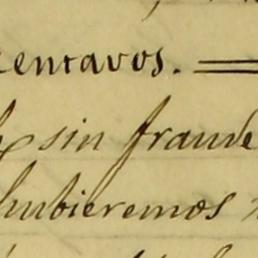 centavos.
sin fraude
hubieremos